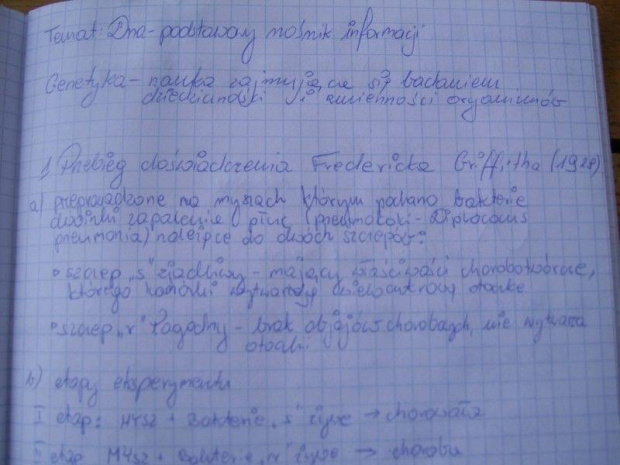 Temat: Dna - podstawowy nośnik informacji
Genetyka - nauka zajmująca się badaniem
dziedziczności i zmienności organizmów
1 Przebieg doświadczenia Fredericka Griffitha (1928)
a) przeprowadzone na myszach którym podano bakterie
zapalenie płuc (pneumokoki - Diplococcus
pneumonia) należące do dwóch szczepów:
• szczep "s" zjadliwy - mający właściwości chorobotwórcze,
którego komórki wytwarzają wielocukrową otoczkę
• szczep "r" łagodny - brak objawów chorobowych, nie wytwarza
otoczki
b) etapy eksperymentu
I etap: mysz + bakterie "s" żywe → chorowała
II etap Mysz + Bakterie "r" żywe →